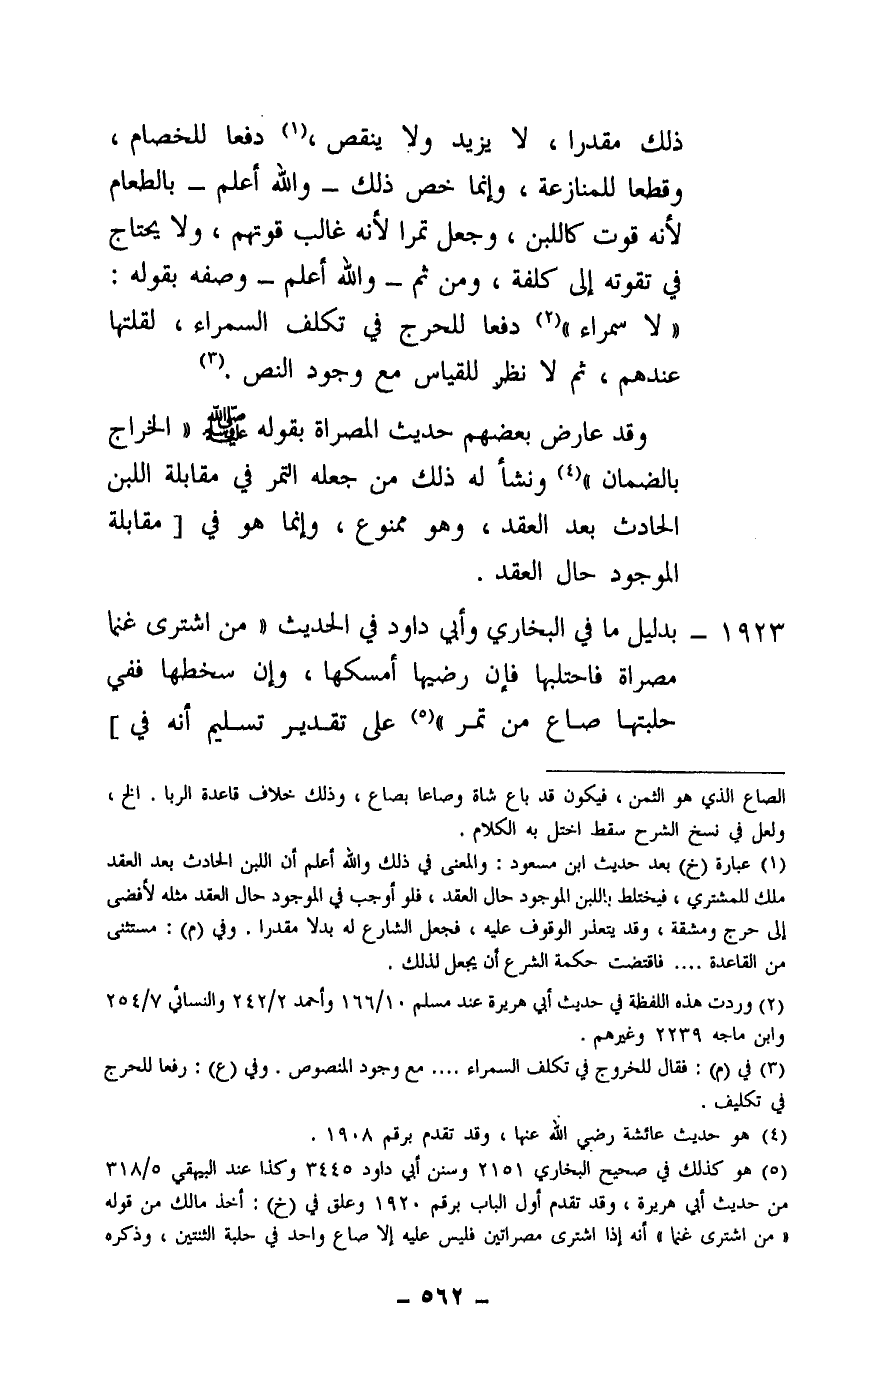 ذلك مقدرا ، لا يزيد ولا ينقص ،(١) دفعا للخصام ،
وقطعا للمنازعة ، وإنما خص ذلك ـ والله أعلم ـ بالطعام
لأنه قوت كاللبن ، وجعل تمرا لأنه غالب قوتهم ، ولا يحتاج
في تقوته إلى كلفة ، ومن ثم ـ والله أعلم ـ وصفه بقوله :
« لا سمراء »(٢) دفعا للحرج في تكلف السمراء ، لقلتها
عندهم ، ثم لا نظر للقياس مع وجود النص .(٣)
وقد عارض بعضهم حديث المصراة بقوله ﷺ « الخراج
بالضمان »(٤) ونشأ له ذلك من جعله التمر في مقابلة اللبن
الحادث بعد العقد ، وهو ممنوع ، وإنما هو في [ مقابلة
الموجود حال العقد .
١٩٢٣ ـ بدليل ما في البخاري وأبي داود في الحديث « من اشترى غنما
مصراة فاحتلبها فإن رضيها أمسكها ، وإن سخطها ففي
حلبتها صاع من تمر »(٥) على تقدير تسليم أنه في ]
الصاع الذي هو الثمن ، فيكون قد باع شاة وصاعا بصاع ، وذلك خلاف قاعدة الربا . الخ ،
ولعل في نسخ الشرح سقط اختل به الكلام .
(١) عبارة (خ) بعد حديث ابن مسعود : والمعنى في ذلك والله أعلم أن اللبن الحادث بعد العقد
ملك للمشتري ، فيختلط باللبن الموجود حال العقد ، فلو أوجب في الموجود حال العقد مثله لأفضى
إلى حرج ومشقة ، وقد يتعذر الوقوف عليه ، فجعل الشارع له بدلا مقدرا . وفي (م) : مستثنى
من القاعدة .... فاقتضت حكمة الشرع أن يجعل لذلك .
(٢) وردت هذه اللفظة في حديث أبي هريرة عند مسلم ١٦٦/١٠ وأحمد ٢٤٢/٢ والنسائي ٢٥٤/٧
وابن ماجه ٢٢٣٩ وغيرهم .
(٣) في (م) : فقال للخروج في تكلف السمراء .... مع وجود المنصوص . وفي (ع) : رفعا للحرج
في تكليف .
(٤) هو حديث عائشة رضي الله عنها ، وقد تقدم برقم ١٩٠٨ .
(٥) هو كذلك في صحيح البخاري ٢١٥١ وسنن أبي داود ٣٤٤٥ وكذا عند البيهقي ٣١٨/٥
من حديث أبي هريرة ، وقد تقدم أول الباب برقم ١٩٢٠ وعلق في (خ) : أخذ مالك من قوله
« من اشترى غنما » أنه إذا اشترى مصراتين فليس عليه إلا صاع واحد في حلبة الثنتين ، وذكره
ـ ٥٦٢ ـ